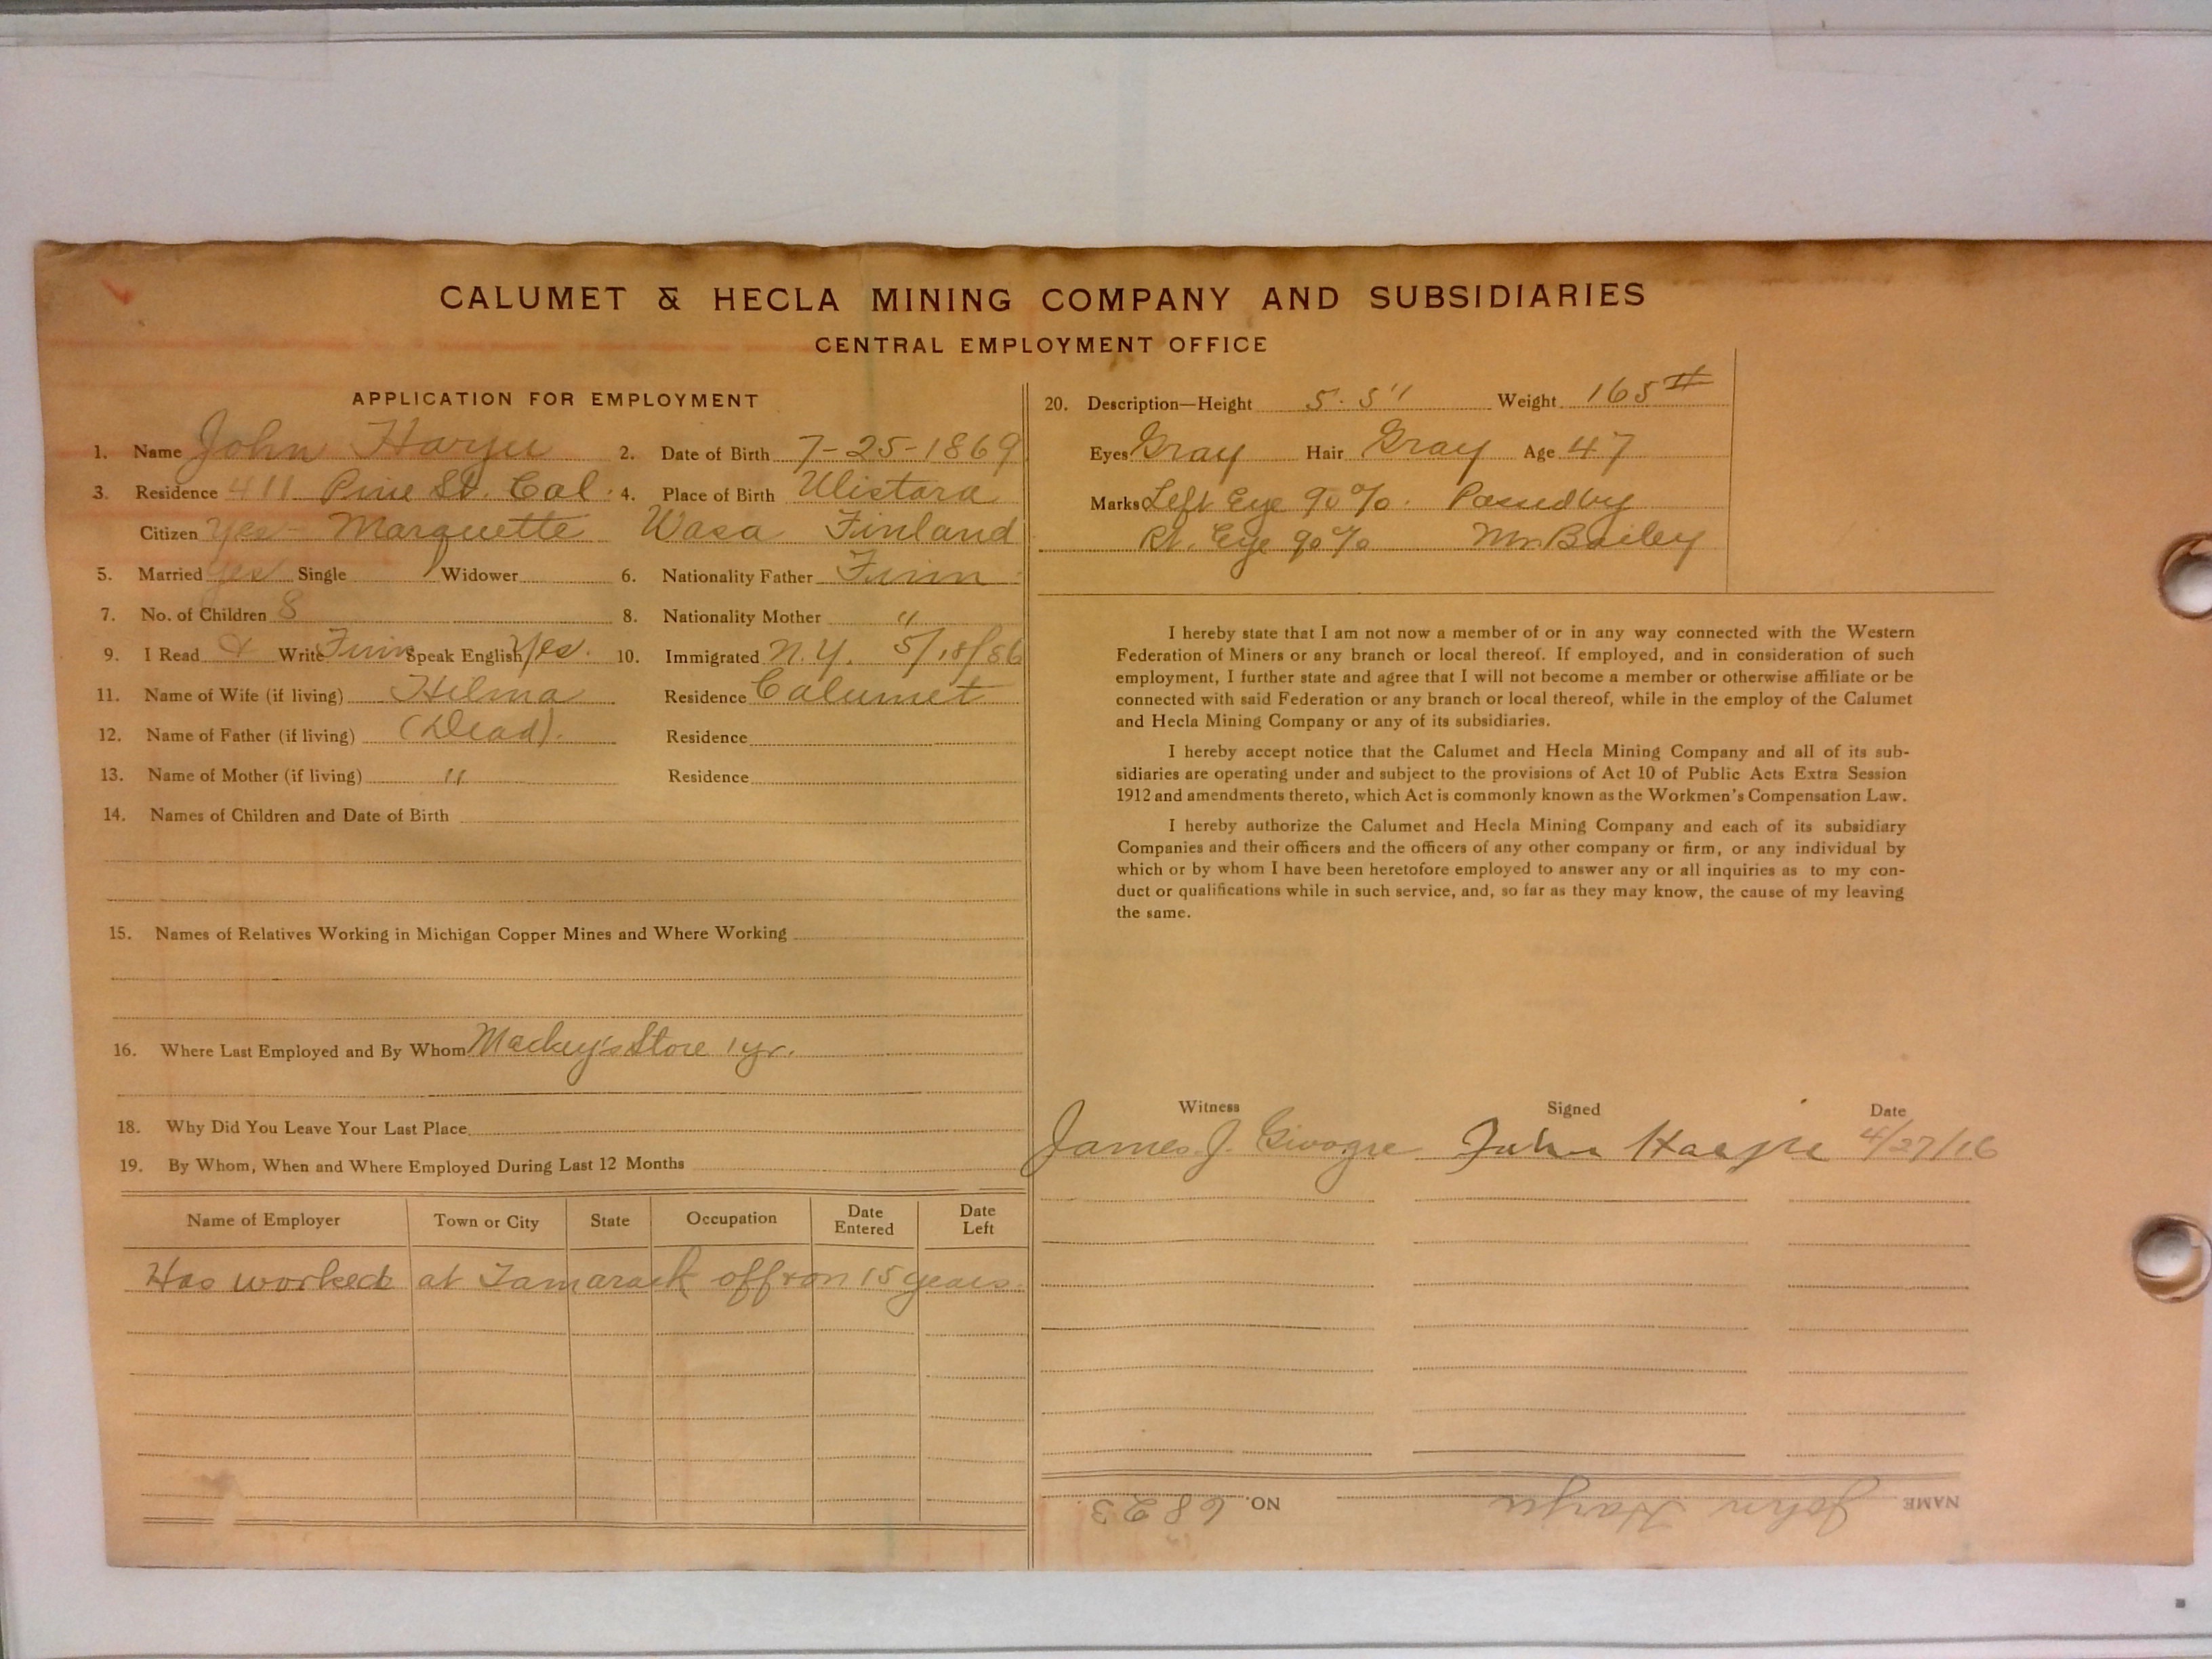 CALUMET & HECLA MINING COMPANY AND SUBSIDIARIES
CENTRAL EMPLOYMENT OFFICE
APPLICATION FOR EMPLOYMENT
1. Name John Harju 2. Date of Birth 7-25-1869
3. Residence 411 Pine St. Cal. 4. Place of Birth Ulistara
Citizen Yes - Marquette Wasa Finland
5. Married Yes Single Widower 6. Nationality Father Finn
7. No. of Children 8 8. Nationality Mother "
9. I Read & Write Finn Speak English Yes. 10. Immigrated N.Y. 5/18/86
11. Name of Wife (if living) Hilma Residence Calumet
12. Name of Father (if living) (Dead). Residence
13. Name of Mother (if living) " Residence
14. Names of Children and Date of Birth
15. Names of Relatives Working in Michigan Copper Mines and Where Working
16. Where Last Employed and By Whom Mackey's Store 1 yr.
18. Why Did You Leave Your Last Place
19. By Whom, When and Where Employed During Last 12 Months
Name of Employer Town or City State Occupation Date Entered Date Left
Has worked at Tamarack off + on 15 years.
20. Description—Height 5' 5" Weight 165 #
Eyes Gray Hair Gray Age 47
Marks Left Eye 90%. Passed by
Rt. Eye 90% Mr. Bailey
I hereby state that I am not now a member of or in any way connected with the Western
Federation of Miners or any branch or local thereof. If employed, and in consideration of such
employment, I further state and agree that I will not become a member or otherwise affiliate or be
connected with said Federation or any branch or local thereof, while in the employ of the Calumet
and Hecla Mining Company or any of its subsidiaries.
I hereby accept notice that the Calumet and Hecla Mining Company and all of its sub-
sidiaries are operating under and subject to the provisions of Act 10 of Public Acts Extra Session
1912 and amendments thereto, which Act is commonly known as the Workmen's Compensation Law.
I hereby authorize the Calumet and Hecla Mining Company and each of its subsidiary
Companies and their officers and the officers of any other company or firm, or any individual by
which or by whom I have been heretofore employed to answer any or all inquiries as to my con-
duct or qualifications while in such service, and, so far as they may know, the cause of my leaving
the same.
Witness Signed Date
James J. John 4/27/16
NAME John Harju NO. 6823